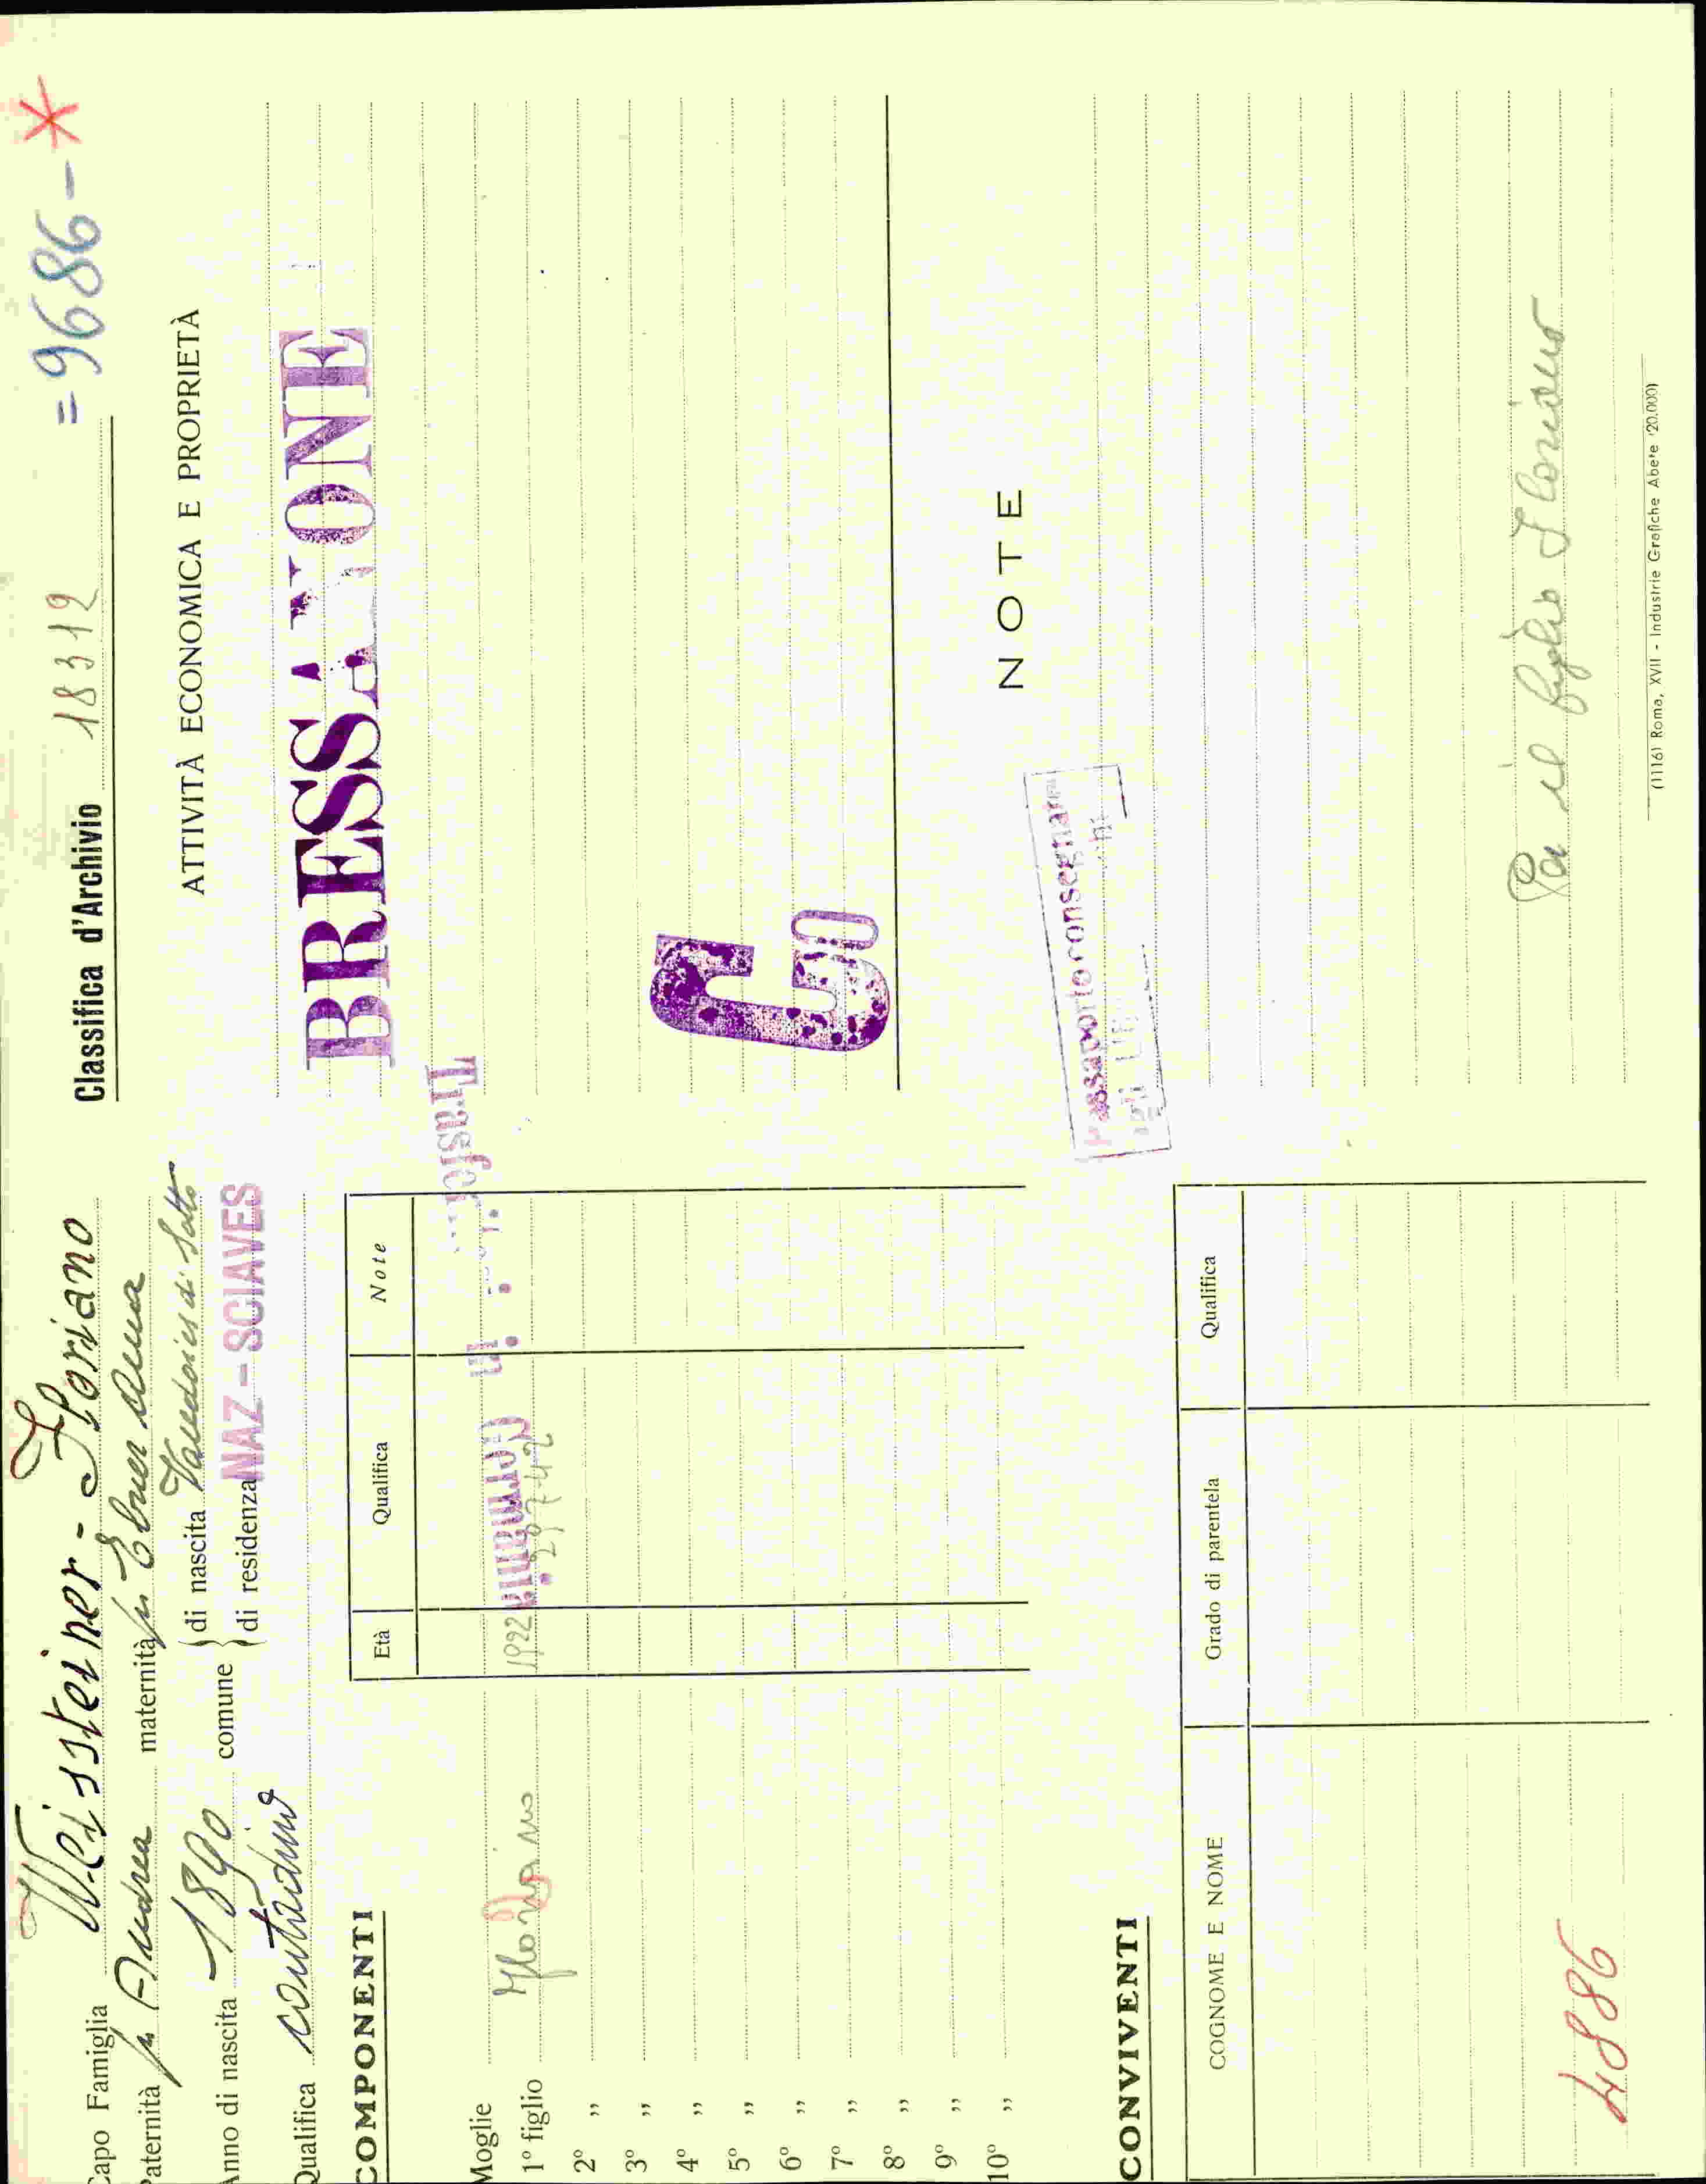 Capo Famiglia Weissteiner - Floriano
Paternità fu Andrea maternità fu Ebner Anna
Anno di nascita 1890 comune
di nascita Vandoies di Sotto
di residenza NAZ - SCIAVES
Qualifica contadino
COMPONENTI
Età Qualifica Note
Moglie
1º figlio Floriano 1922
Germania
29 7 42
2º „
3º „
4º „
5º „
6º „
7º „
8º „
9º „
10º „
CONVIVENTI
COGNOME E NOME Grado di parentela Qualifica
4886
Classifica d'Archivio 18312
=9686-
ATTIVITÀ ECONOMICA E PROPRIETÀ
BRESSANONE
G
NOTE
Passaporto consegnato
Per il figlio Floriano
(1116) Roma, XVII - Industrie Grafiche Abete (20.000)